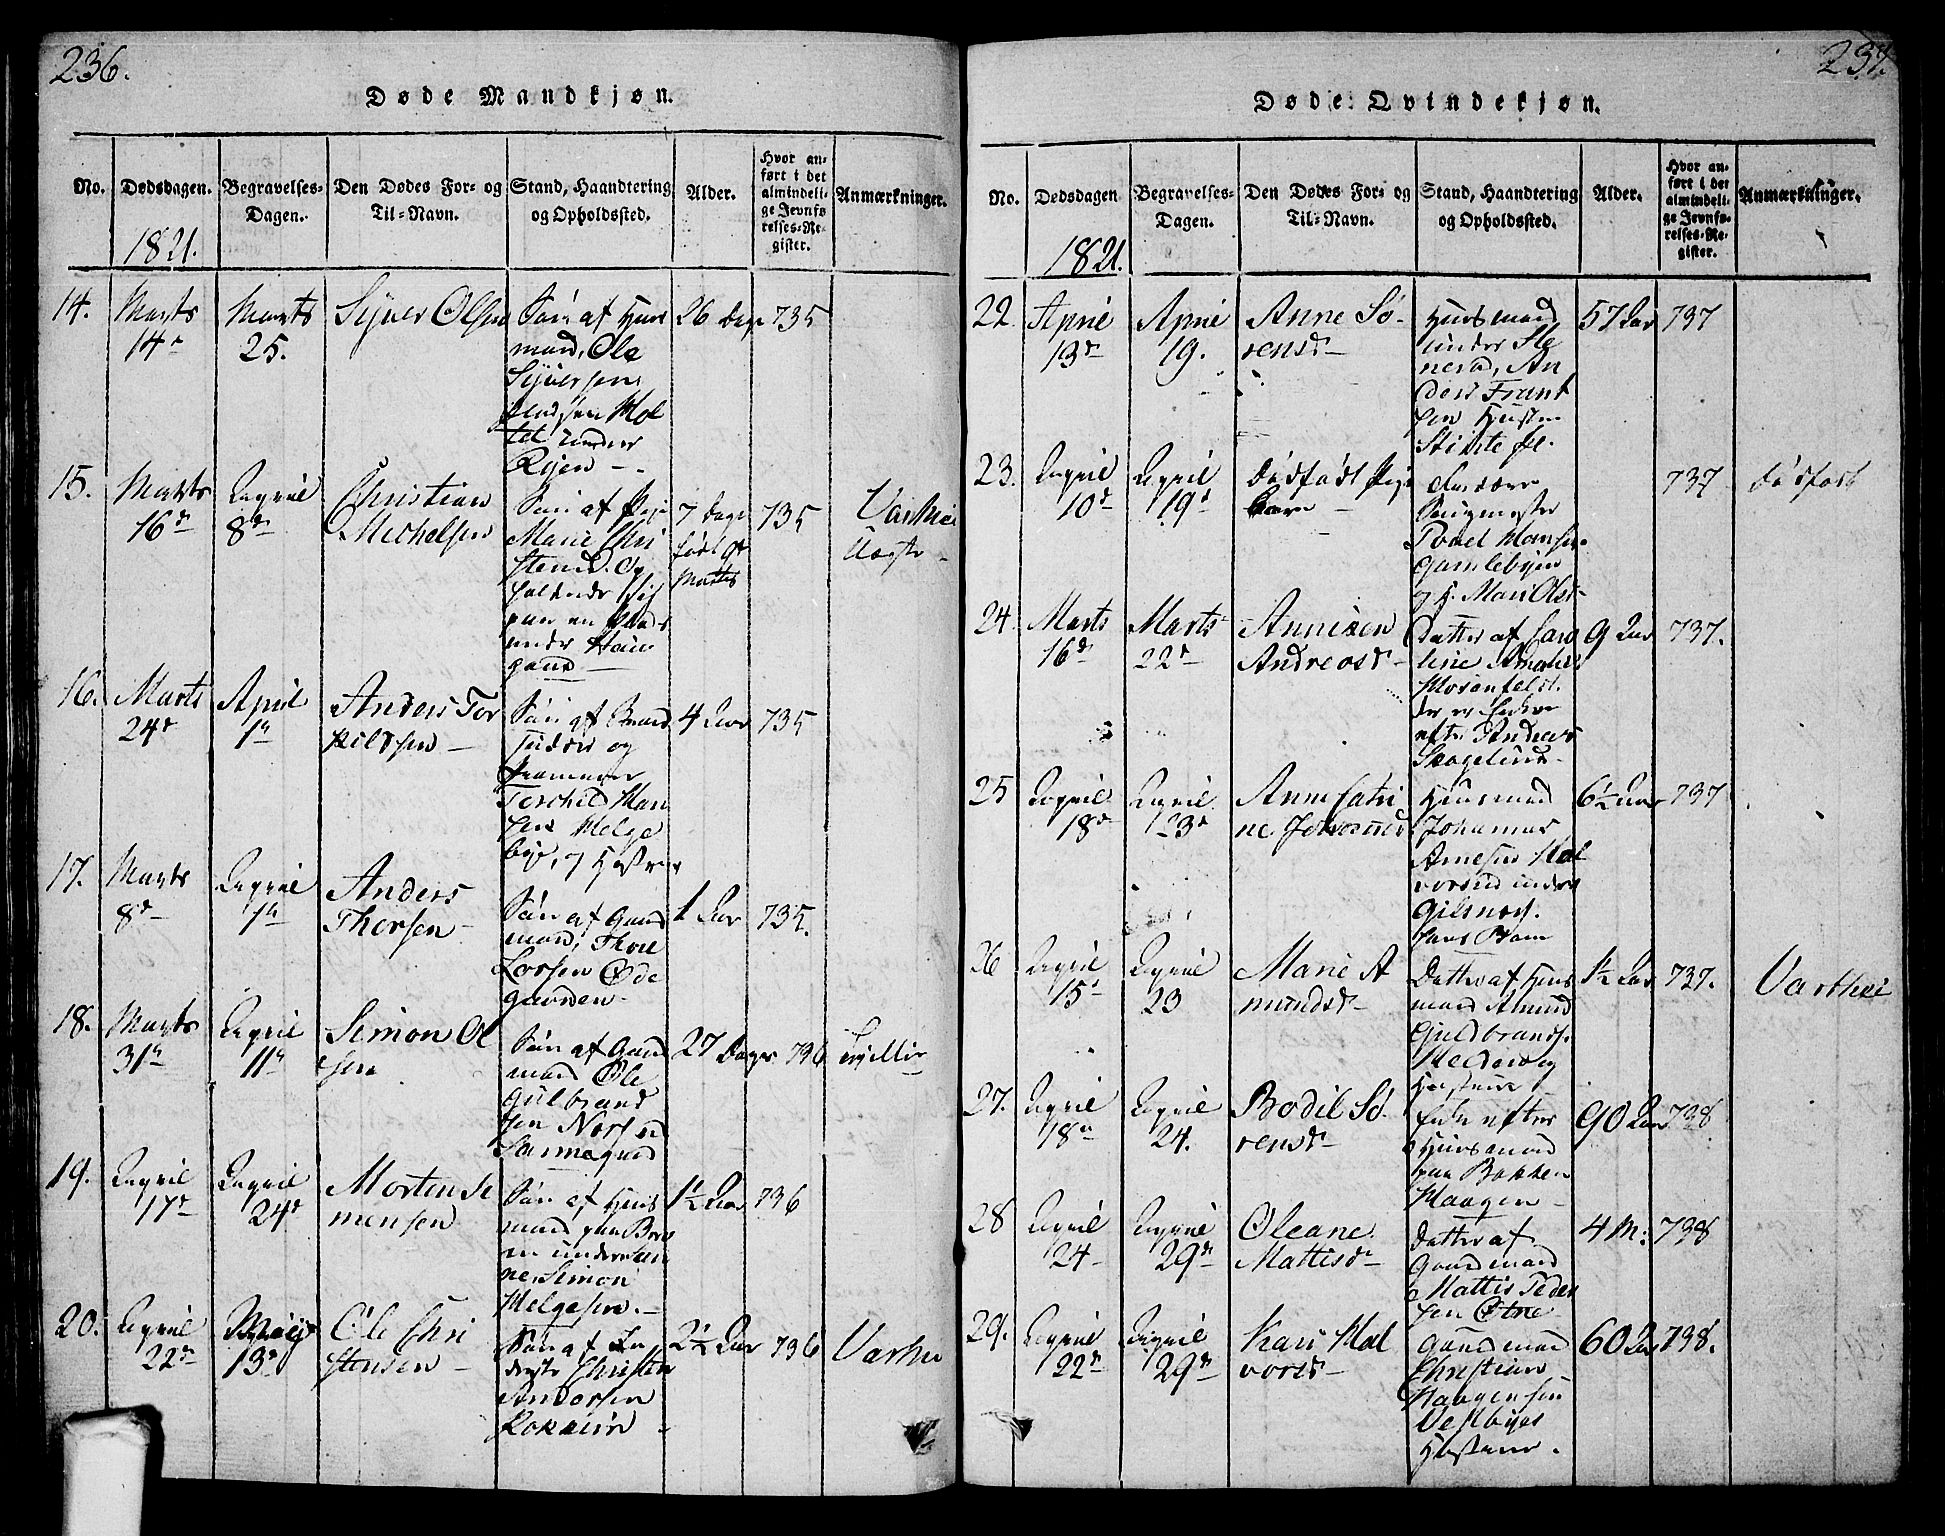 236.
Døde Mandkjøn.
No.
Dødsdagen.
Begravelses-
Dagen.
Den Dødes For- og
Til-Navn.
Stand, Haandtering
og Opholdssted.
Alder.
Hvor an-
ført i det
almindeli-
ge Jevnfø
relses-Re-
gister.
Anmærkninger.
1821.
14.
Marts
14de
Marts
25.
Syver Olsen
Søn af Huus
mand, Ole
Syversen
under
Ryen
26 Dage
735
15.
Marts
16de
April
8de
Christian
Michelsen
Søn af Pige
Marie Chri
stensd. Op
holdende sig
paa en Plads
under Haui
gaard
7 Dage
født 9de
Martis
735
16.
Marts
24de
April
1te
Anders Tor
kildsen
Søn af Gaard
og
Torchild Han
sen Helge
bye, og Hustrue
4 Aar
735
17.
Marts
8de
April
1te
Anders
Thorsen
Søn af Gaard
mand, Thore
Larsen Øde
gaarden
1 Aar
735.
18.
Marts
31te
April
11te
Simon Ol
sen
Søn af Gaard
mand Ole
Gulbrand
sen Nordre
Sannegaard
27 Dage
736
19.
April
17de
April
24de
Morten Si
mensen
Søn af Huus
mand paa Bra
en under San
ne, Simon
Helgesen.
1½ Aar
736
20.
April
22de
Maij
13de
Ole Chri
stensen
Søn af In
derste Christen
Andersen
2½ Aar
736
237.
Døde Qvindekjøn.
No.
Dødsdagen
Begravelses-
Dagen.
Den Dødes For- og
Til-Navn.
Stand, Haandtering
og Opholdssted.
Alder.
Hvor an-
ført i det
almindeli-
ge Jevnfø-
relses-Re-
gister.
Anmærkninger.
1821.
22.
April
13de
April
19.
Anne Sø-
rensd
Huusmand
under Ste
nerød, An
ders Frant
sen Hustru
57 Aar
737
23.
April
10de
April
19de
Dødfødt Pige
Barn
Saugmester
Povel Hansen
Gamlebyen
og H. Mari Olsd
737
Dødfødt
24.
Marts
16de
Marts
22de
Annichen
Andreasd
Datter af Caro
line Amalie
Rosenfeldt
der er Enke
efter Andreas
Skogelund
9 Aar
737.
25
April
18de
April
23de
Anne Catri
ne Johannesd
Huusmand
Johannes
Arnesen Hal
vorsrud under
Gilsnes
hans Barn
6½ Aar
737
26
April
15de
April
23
Marie A
mundsd
Datter af Huus
mand Amund
Guldbrands.
og
Hustrue
1½ Aar
737.
27.
April
18de
April
24.
Bodil Sø
rensd
Enke efter
Huusmand
paa Bakken
Haagen
90 Aar
738
28
April
24
April
29de
Oleane
Mattisd
Datter af
Gaardmand
Mattis Peder
sen Otne
4 M:
738
29.
April
22de
April
29de
Kari Hal
vorsd
Gaardmand
Christian
Haagensen
Vestbyes
Hustrue.
60 Aar
738.